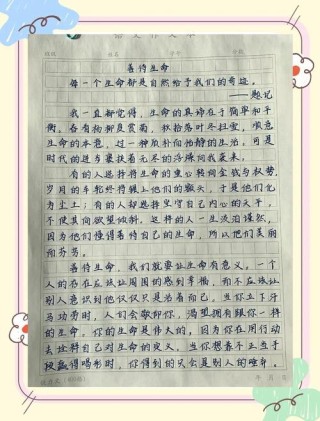 善待生命
每一个生命都是自然给予我们的奇迹。
——题记
我一直都觉得，生命的真谛在于简单和平
衡。春有杨柳夏赏雨，秋拾落叶冬扫雪，顺应
生命的本意，过一种质朴而恬静的生活。可是
时代的进步裹挟着无尽的浮躁向我袭来。
有的人选择将生命的重心转向金钱与权势，
岁月的车轮终将辗上他们的额头，于是他们化
为尘土；有的人却选择坚守自己内心的天平，
不使其向欲望倾斜。这样的人一生淡泊谨然，
因为他们懂得善待自己的生命，所以他们美丽
而芬芳。
善待生命，我们就要让生命有意义。一个
人的存在应该让周围的感到幸福，而不应该让
别人意识到他仅仅只是活着而已。当你立下汗
马功劳时，人们会敬仰你，渴望拥有跟你一样
的生命。你的生命是伟大的，因为你在用行动
去诠释自己对生命的定义。当你想靠不正当手
段赢得喝彩时，你得到的只会是别人的唾弃。
年 月 日